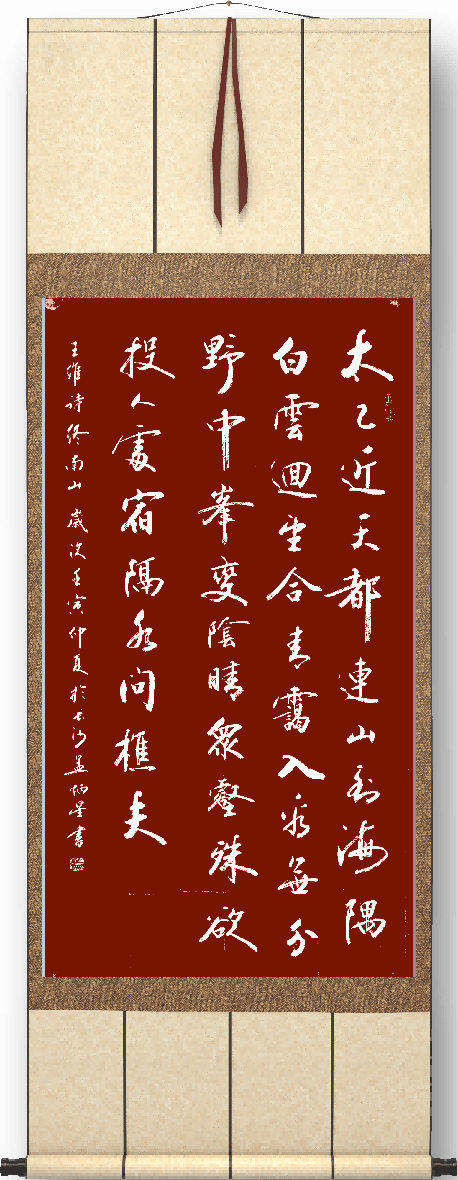 太乙近天都連山到海隅
白雲迴望合青靄入看無分
野中峯變陰晴眾壑殊欲
投人處宿隔水問樵夫
王維詩終南山歲次壬寅仲夏於長沙孟炳星書